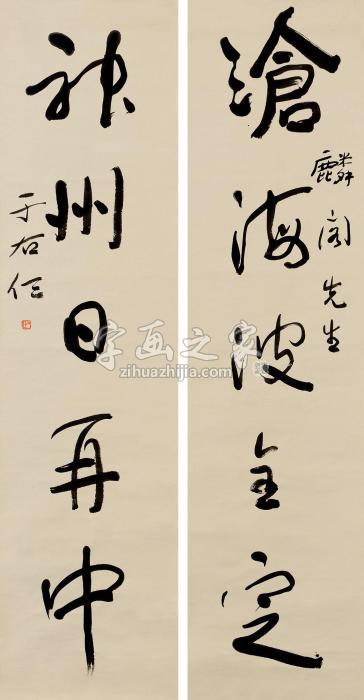 滄海波全定
麟阁先生
神州日再中
于右任
字画之家
zihuazhijia.com